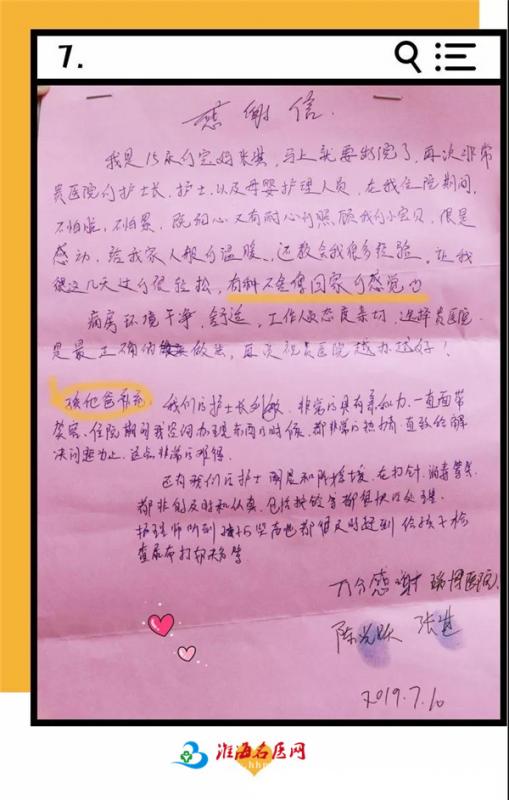 7.
感谢信
我是15床的宝妈张燕,马上就要出院了,再次非常
贵医院的护士长、护士、以及母婴护理人员,在我住院期间,
不怕脏,不怕累,既细心又有耐心的照顾我们的小宝贝,很是
感动,给我家人般的温暖,还教会我很多经验,让我
这几天过的很轻松,有种不舍得回家的感觉
病房环境干净,舒适,工作人员态度亲切,选择贵医院
是最正确的做法,再次祝贵医院越办越好!
孩他爸补充: 我们的护士长 非常的具有亲和力,一直面带
笑容、住院期间我咨询办理东西的时候,都非常的热情,直致给解
决问题为止,这点非常的难得。
还有我们的护士 和陈 ,在打针,消毒等等
都非常及时和认真,包括按铃等都很快的处理。
护理师听到 哭声也都很及时赶到 给孩子检
查尿布打
万分感谢 瑞博医院
陈 张
2019.7.10
淮海名医网